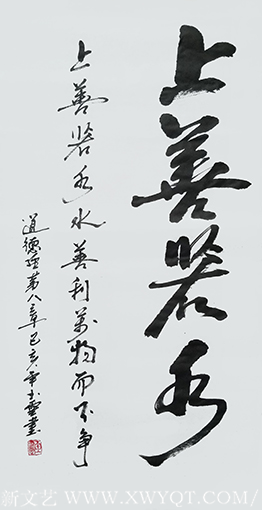 上善若水
上善若水水善利萬物而不争
道德經第八章己亥書
新文艺/ WWW.XWYQT.COM/